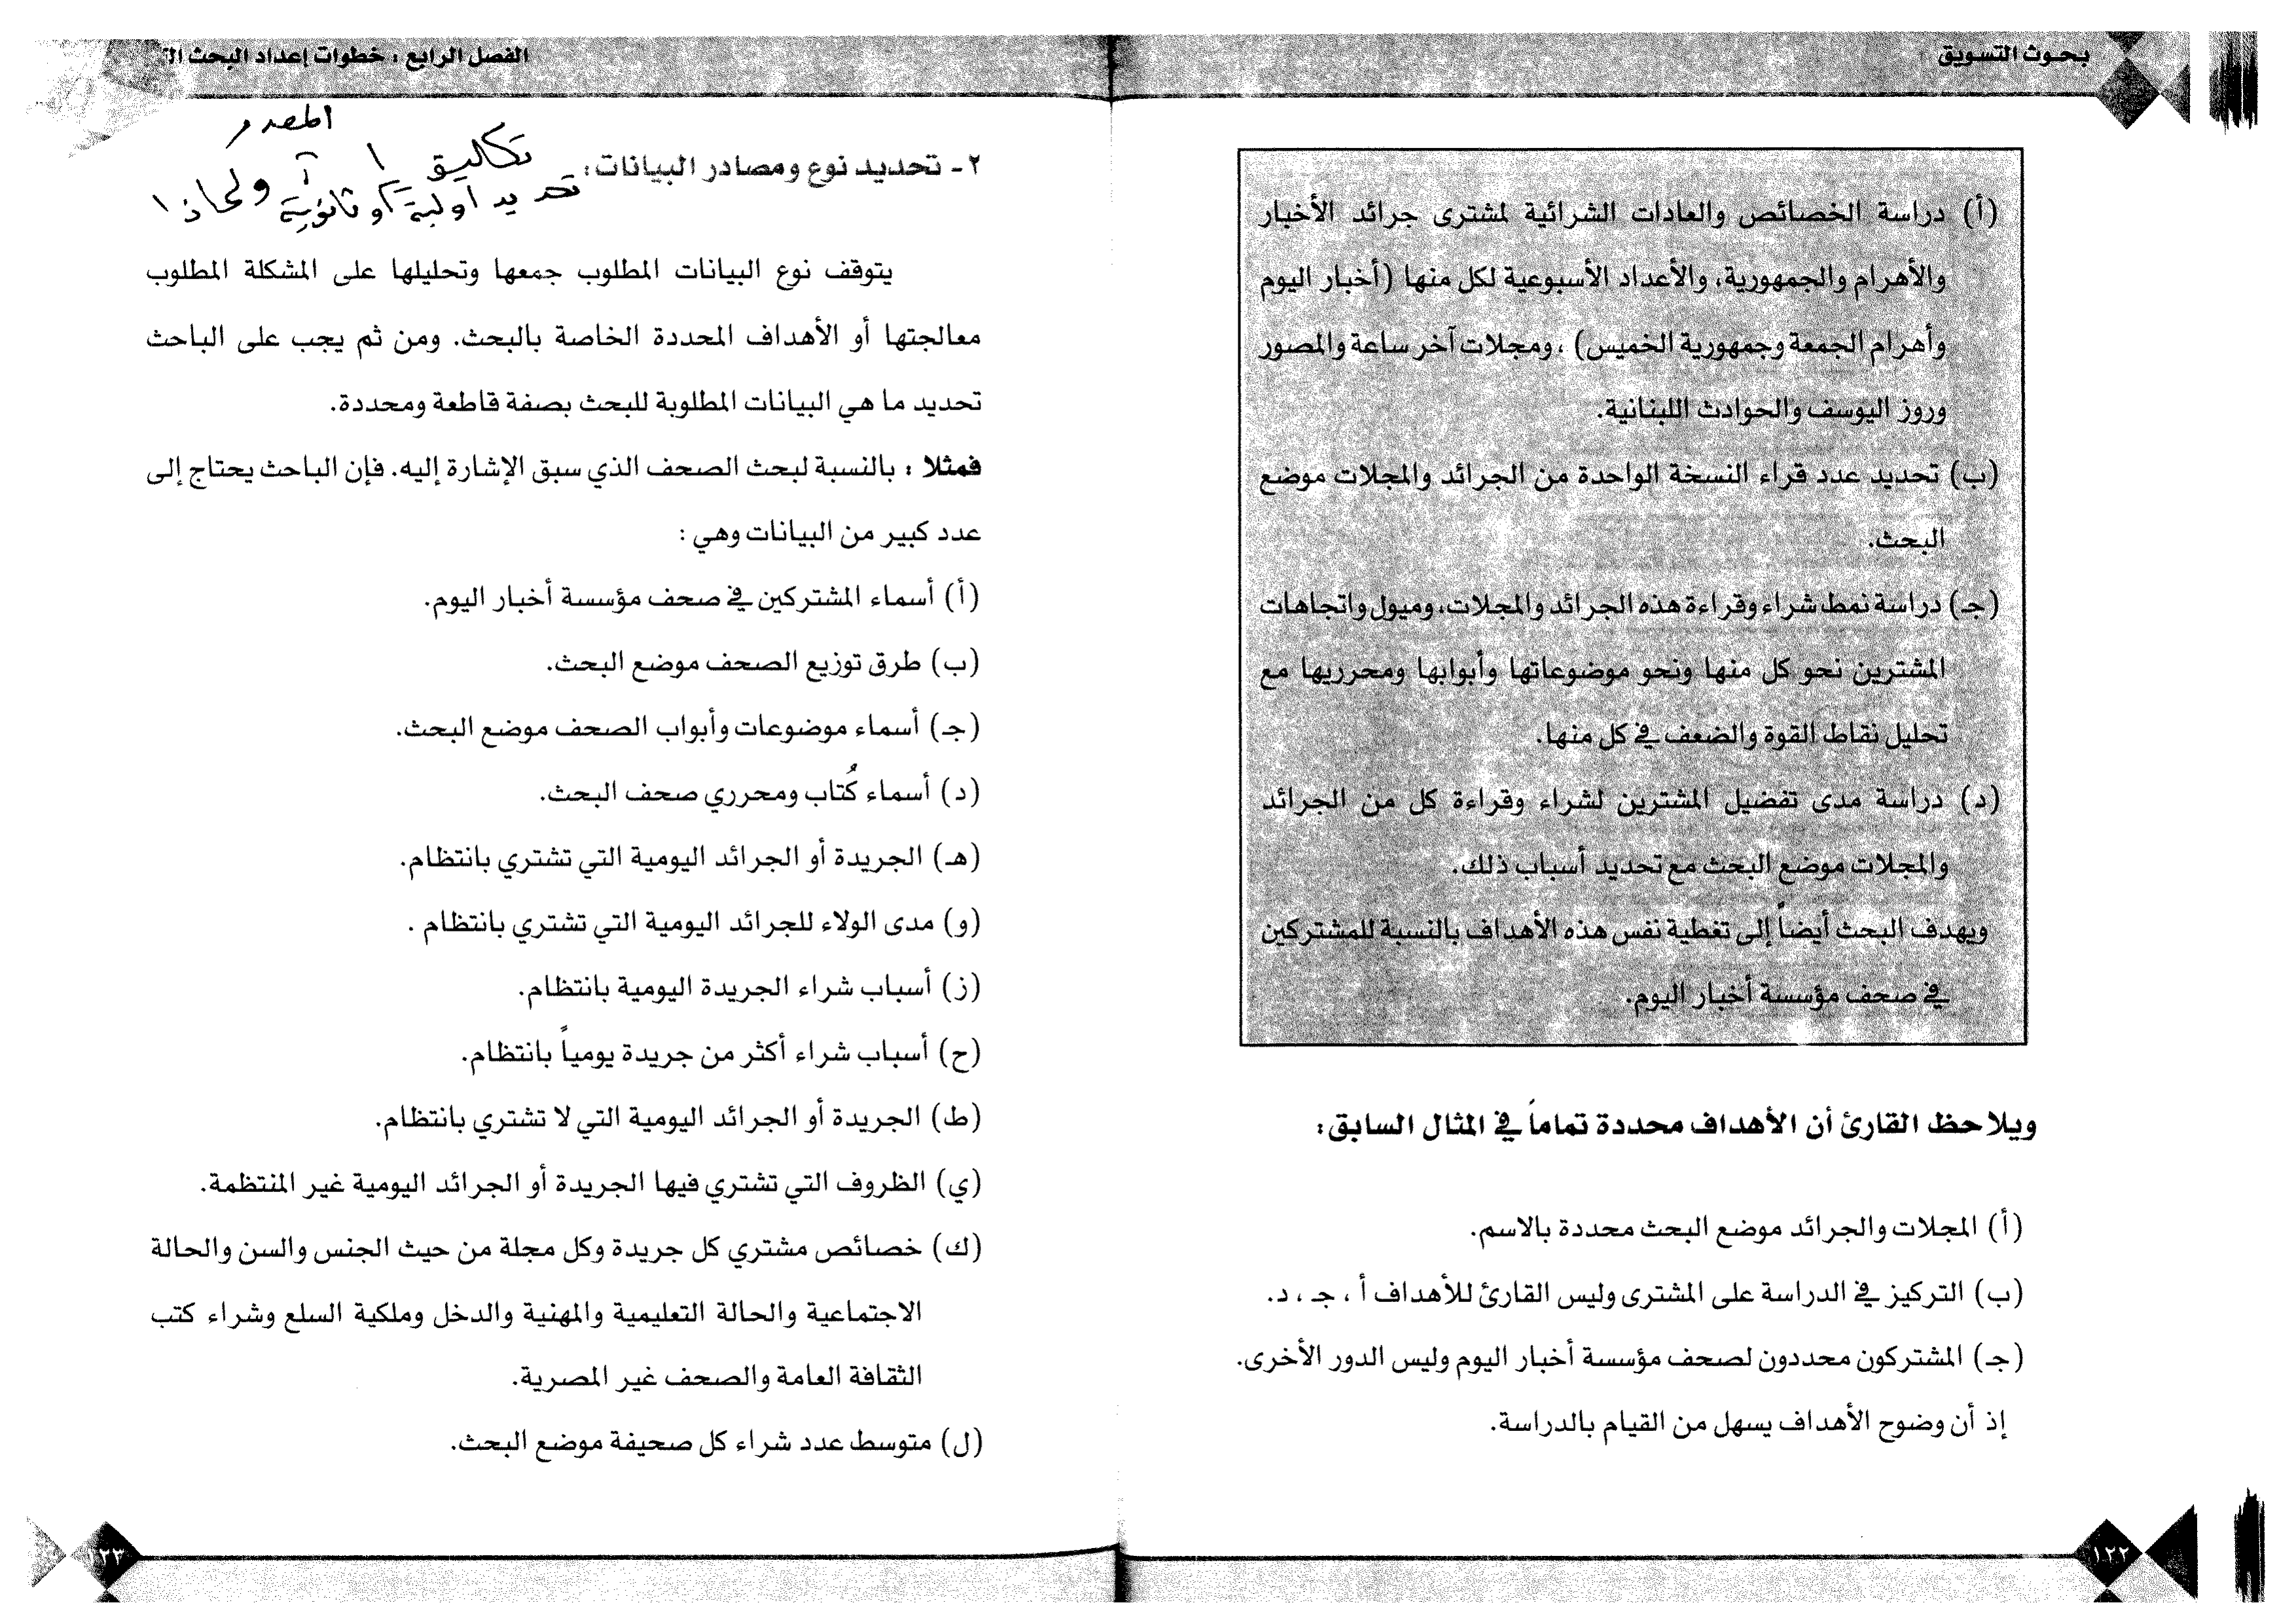 بحوث التسويق
(أ) دراسة الخصائص والعادات الشرائية لمشترى جرائد الأخبار
والأهرام والجمهورية، والأعداد الأسبوعية لكل منها (أخبار اليوم
وأهرام الجمعة وجمهورية الخميس)، ومجلات آخر ساعة والمصور
وروز اليوسف والحوادث اللبنانية.
(ب) تحديد عدد قراء النسخة الواحدة من الجرائد والمجلات موضع
البحث.
(جـ) دراسة نمط شراء وقراءة هذه الجرائد والمجلات، وميول واتجاهات
المشترين نحو كل منها ونحو موضوعاتها وأبوابها ومحرريها مع
تحليل نقاط القوة والضعف في كل منها.
(د) دراسة مدى تفضيل المشترين لشراء وقراءة كل من الجرائد
والمجلات موضع البحث مع تحديد أسباب ذلك.
ويهدف البحث أيضاً إلى تغطية نفس هذه الأهداف بالنسبة للمشتركين
في صحف مؤسسة أخبار اليوم.
ويلاحظ القارئ أن الأهداف محددة تماماً في المثال السابق:
(أ) المجلات والجرائد موضع البحث محددة بالاسم.
(ب) التركيز في الدراسة على المشترى وليس القارئ للأهداف أ ، جـ ، د.
(جـ) المشتركون محددون لصحف مؤسسة أخبار اليوم وليس الدور الأخرى.
إذ أن وضوح الأهداف يسهل من القيام بالدراسة.
١٢٢
الفصل الرابع : خطوات إعداد البحث
المصدر
تكاليف
٢ - تحديد نوع ومصادر البيانات:
تحديد أولية أو ثانوية ولماذا
يتوقف نوع البيانات المطلوب جمعها وتحليلها على المشكلة المطلوب
معالجتها أو الأهداف المحددة الخاصة بالبحث. ومن ثم يجب على الباحث
تحديد ما هي البيانات المطلوبة للبحث بصفة قاطعة ومحددة.
فمثلا : بالنسبة لبحث الصحف الذي سبق الإشارة إليه. فإن الباحث يحتاج إلى
عدد كبير من البيانات وهي :
(أ) أسماء المشتركين في صحف مؤسسة أخبار اليوم.
(ب) طرق توزيع الصحف موضع البحث.
(جـ) أسماء موضوعات وأبواب الصحف موضع البحث.
(د) أسماء كُتاب ومحرري صحف البحث.
(هـ) الجريدة أو الجرائد اليومية التي تشتري بانتظام.
(و) مدى الولاء للجرائد اليومية التي تشتري بانتظام .
(ز) أسباب شراء الجريدة اليومية بانتظام.
(ح) أسباب شراء أكثر من جريدة يومياً بانتظام.
(ط) الجريدة أو الجرائد اليومية التي لا تشتري بانتظام.
(ي) الظروف التي تشتري فيها الجريدة أو الجرائد اليومية غير المنتظمة.
(ك) خصائص مشتري كل جريدة وكل مجلة من حيث الجنس والسن والحالة
الاجتماعية والحالة التعليمية والمهنية والدخل وملكية السلع وشراء كتب
الثقافة العامة والصحف غير المصرية.
(ل) متوسط عدد شراء كل صحيفة موضع البحث.
١٢٣